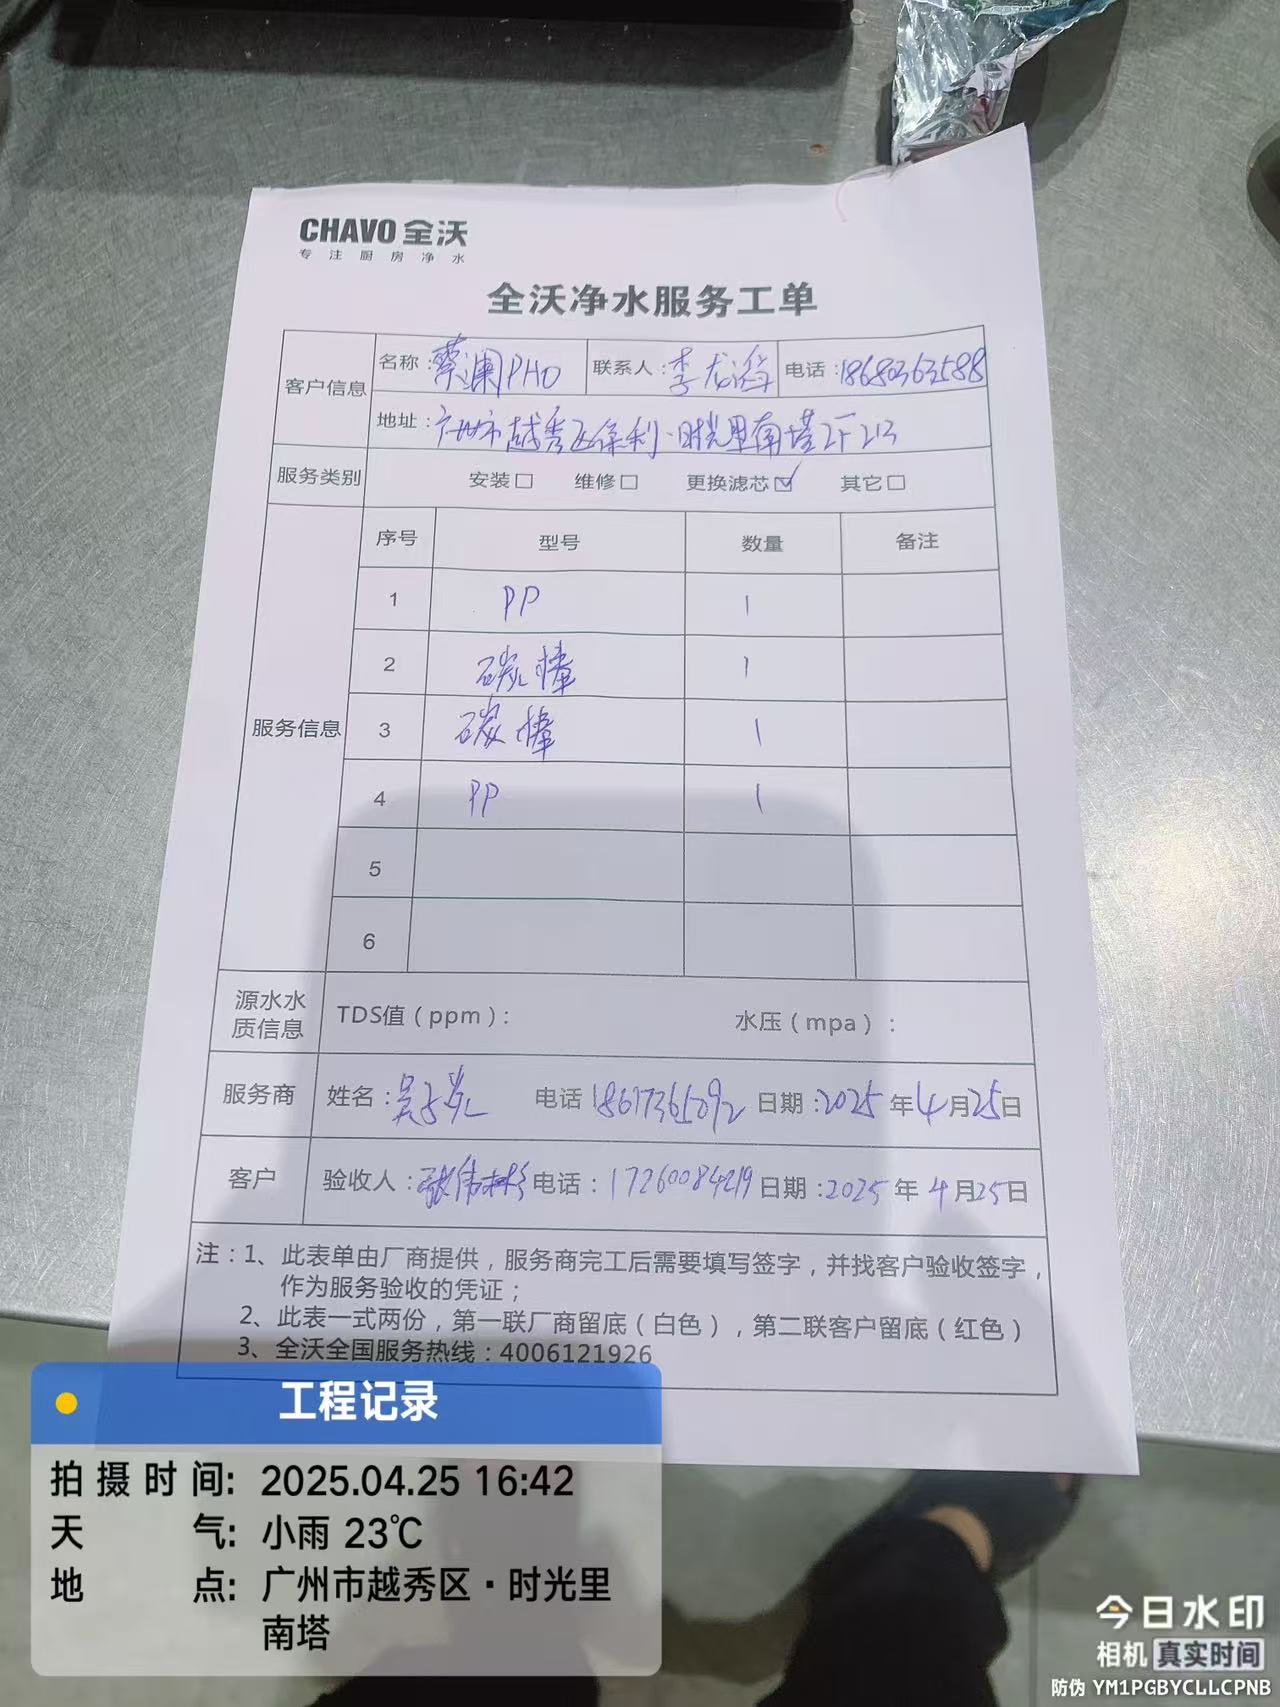 CHAVO 全沃
专注厨房净水
全沃净水服务工单
客户信息 名称：蔡澜PHO 联系人：李龙 电话：18680363588
地址：广州市越秀区保利·时光里南塔2F 213
服务类别 安装☐ 维修☐ 更换滤芯☑ 其它☐
服务信息 序号 型号 数量 备注
1 PP 1
2 碳棒 1
3 碳棒 1
4 PP 1
5
6
源水水质信息 TDS值（ppm）： 水压（mpa）：
服务商 姓名：吴子 电话 18617365092 日期：2025年4月25日
客户 验收人：张伟彬 电话：17260084219 日期：2025年4月25日
注：1、此表单由厂商提供，服务商完工后需要填写签字，并找客户验收签字，
作为服务验收的凭证；
2、此表一式两份，第一联厂商留底（白色），第二联客户留底（红色）
3、全沃全国服务热线：4006121926
工程记录
拍摄时间：2025.04.25 16:42
天气：小雨 23℃
地点：广州市越秀区·时光里
南塔
今日水印
相机 真实时间
防伪 YM1PGBYCLLCPNB